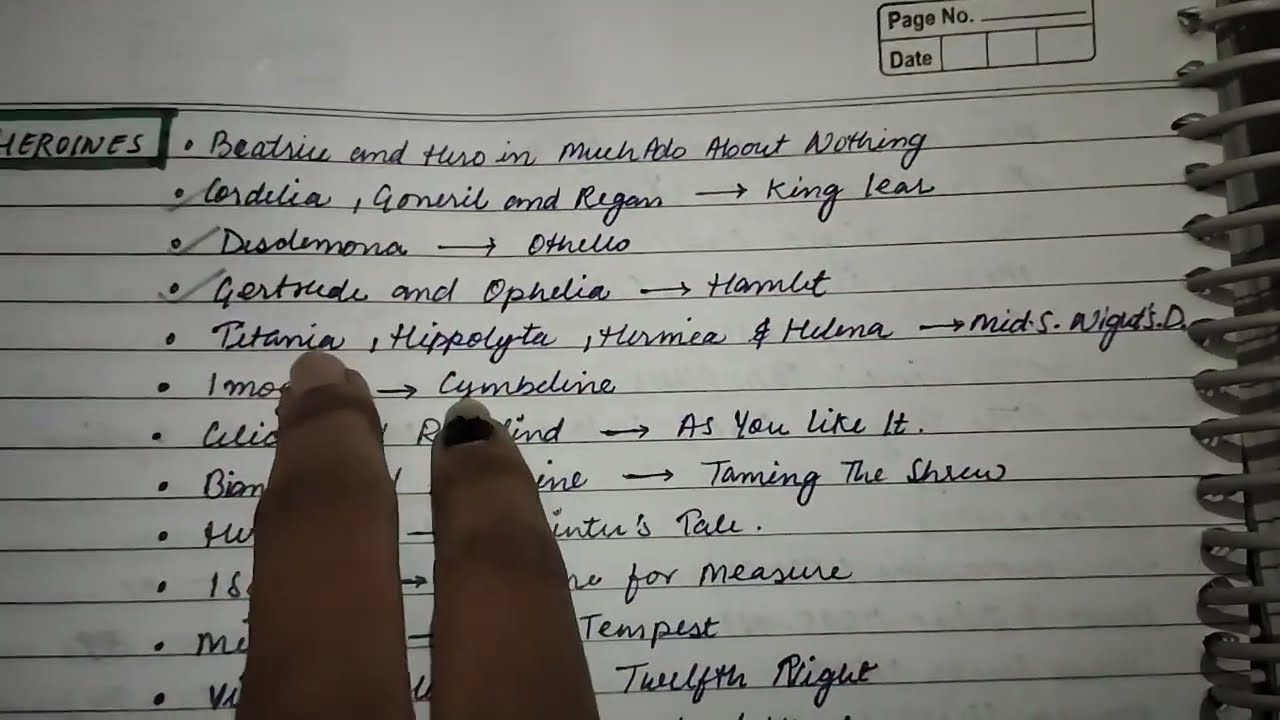 Page No.
Date
HEROINES • Beatrice and Hero in Much Ado About Nothing
• Cordelia, Goneril and Regan → King lear
• Desdemona → Othello
• Gertrude and Ophelia → Hamlet
• Titania, Hippolyta, Hermia & Helena → Mid.S. Night's.D.
• → Cymbeline
• → As You Like It.
• → Taming The Shrew
• Tale.
• → for Measure
• Tempest
• Twelfth Night